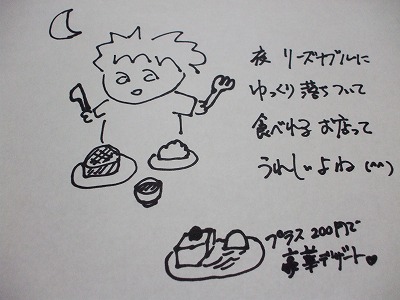 夜 リーズナブルに
ゆっくり落ちついて
食べれる お店って
うれしいよね (^^)
プラス200円で
豪華デザート♥